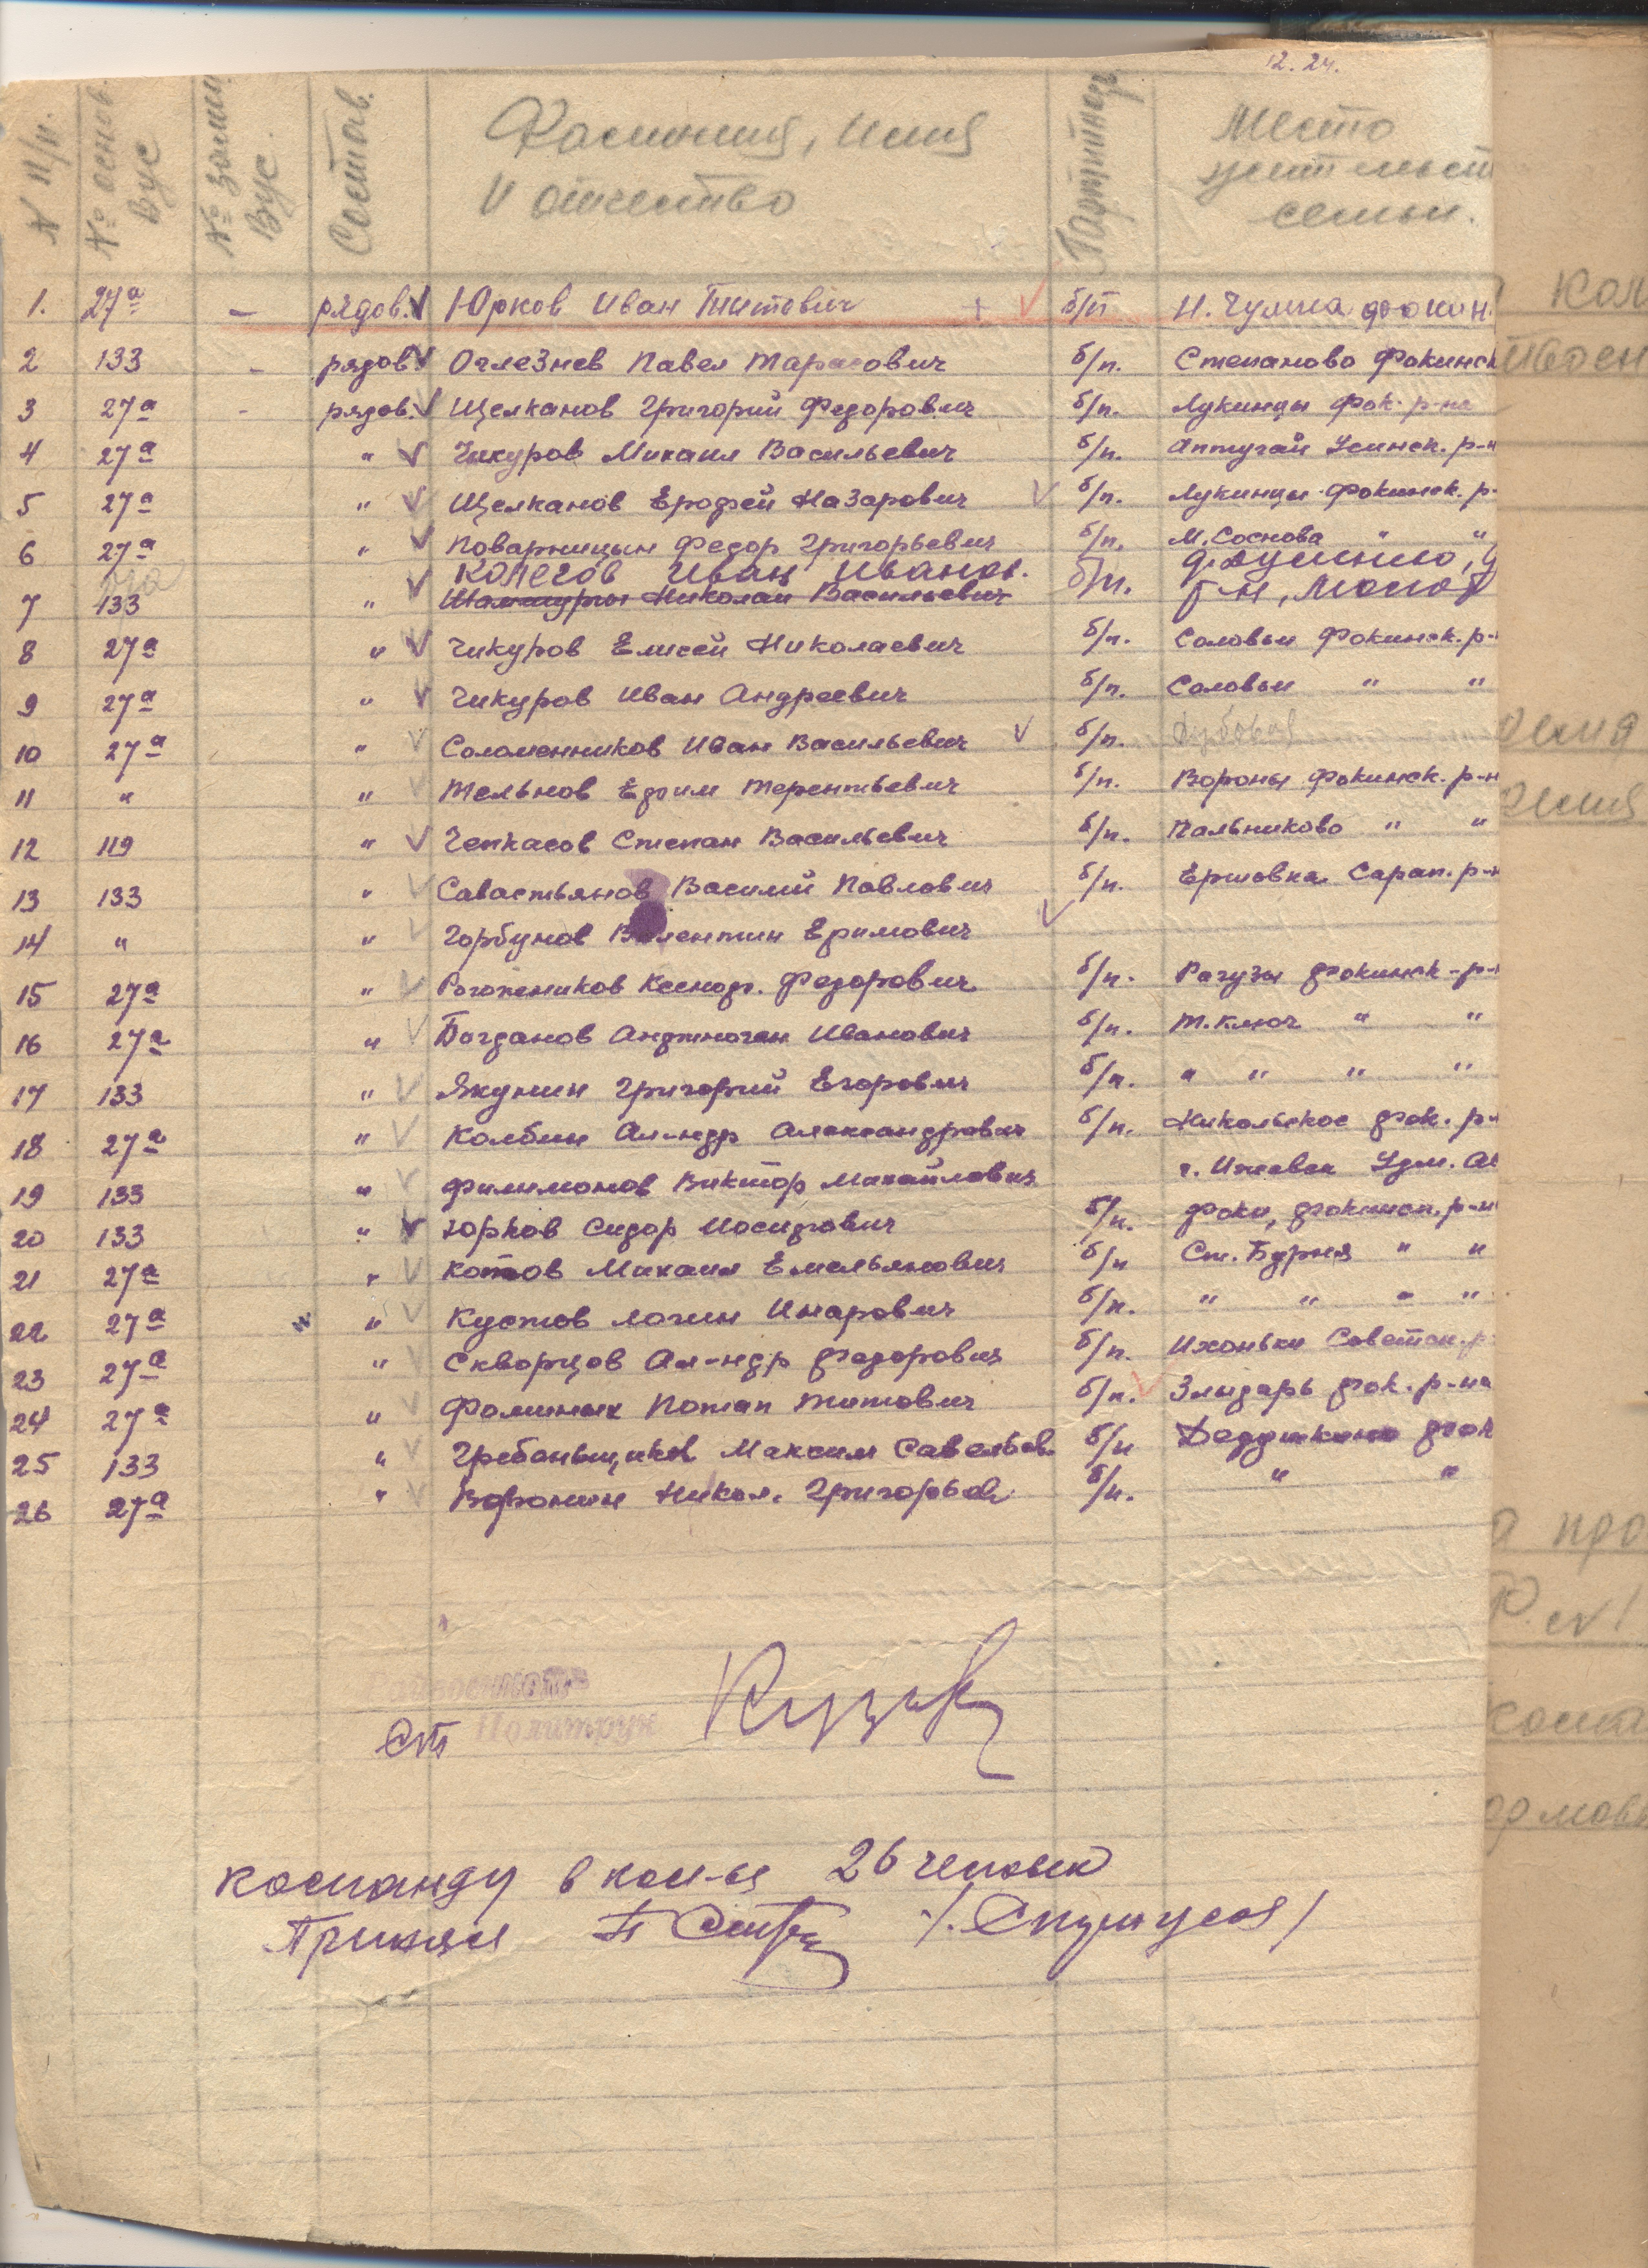 12. 24.
N п/п. № основ. ВУС № замещ. ВУС. Состав. Фамилия, имя и отчество Партийность Место жительст семьи.
1. 27а – рядов. Юрков Иван Титович + б/п Н. Чумна Фокин.
2 133 - рядов Оглезнев Павел Тарасович б/п. Степаново Фокинск
3 27а - рядов. Щелканов Григорий Федорович б/п. Лукинцы Фок. р-на
4 27а " Чикуров Михаил Васильевич б/п. Аптугай Усинск. р-н
5 27а " Щелканов Ерофей Назарович б/п. Лукинцы Фокинск. р-
6 27а " Поварницын Федор Григорьевич б/п. М. Соснова " "
Колегов Иван Иванов.
7 133 " Николай Васильевич б/п. р-н,
8 27а " Чикуров Елисей Николаевич б/п. Соловьи Фокинск. р-
9 27а " Чикуров Иван Андреевич б/п. Соловьи " "
10 27а " Соломенников Иван Васильевич б/п. Дубовая
11 " " Тельнов Ефим Терентьевич б/п. Вороны Фокинск. р-н
12 119 " Чепкасов Степан Васильевич б/п. Пальниково " "
13 133 " Савастьянов Василий Павлович б/п. Ершовка Сарап. р-н
14 " " Горбунов Валентин Ефимович
15 27а " Рогожников Ксеноф. Федорович б/п. Рагузы Фокинск-р-
16 27а " Богданов Анфиноген Иванович б/п. Т. Ключ " "
17 133 " Якунин Григорий Егорович б/п. " " " "
18 27а " Колбин Ал-ндр Александрович б/п. Никольское Фок. р-
19 133 " Филимонов Виктор Михайлович г. Ижевск Удм. АС
20 133 " Юрков Сидор Иосифович б/п. Фоки, Фокинск. р-н
21 27а " Котов Михаил Емельянович б/п Ст. Бурня " "
22 27а " Кустов Логин Инарович б/п. " " " "
23 27а " Скворцов Ал-ндр Федорович б/п. Ихоньки Советск. р-
24 27а " Фоминых Потап Титович б/п. Злыдарь Фок. р-на
25 133 " Гребеньщиков Максим Савельев. б/п Дедушкино Фок
26 27а " Воронин Никол. Григорьев б/п. " "
Ст Политрук
команду в кол-ве 26 человек
Принял